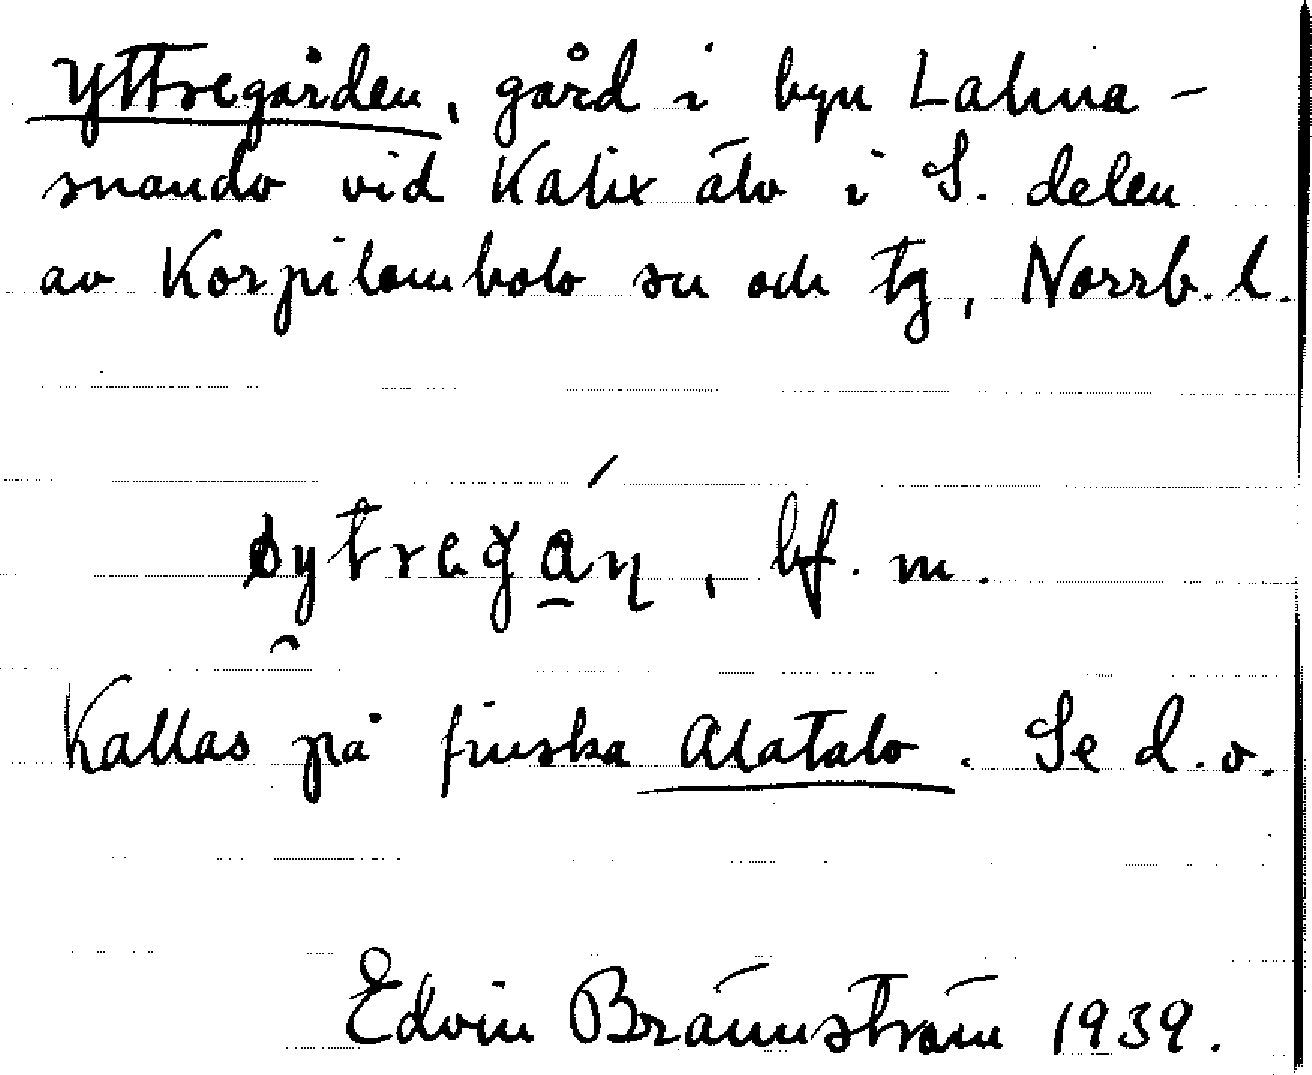 Yttregården, gård i byn Lahna-
suando vid Kalix älv i S. delen
av Korpilombolo sn och tg, Norrb. l.
bf. m.
Kallas på finska Alatalo. Se d. o.
Edvin Brännström 1939.